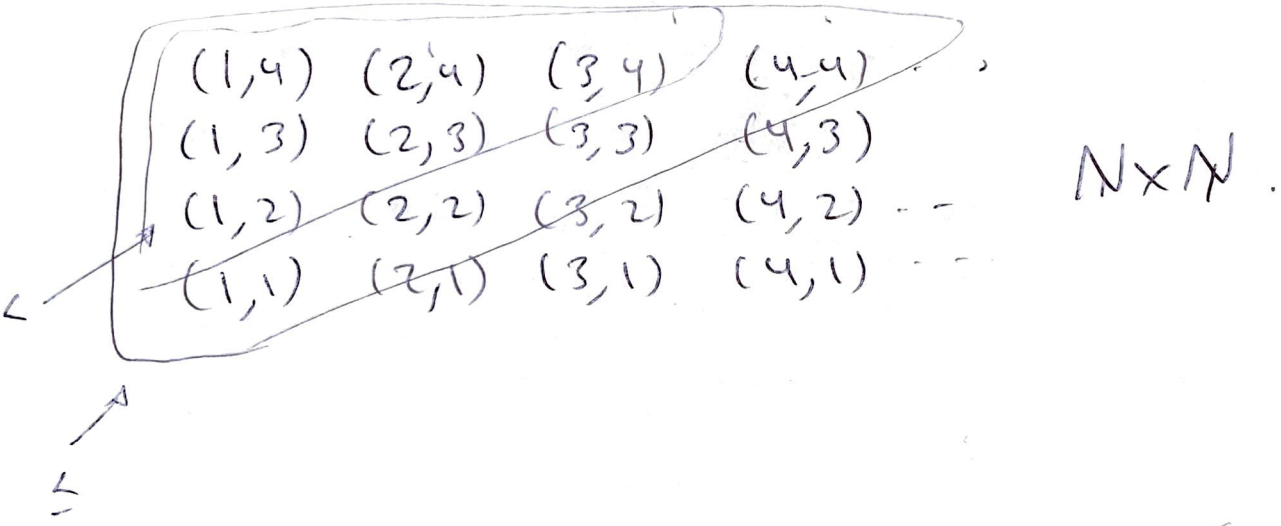 (1,4) (2,4) (3,4) (4,4) . ,
(1,3) (2,3) (3,3) (4,3)
N×N.
(1,2) (2,2) (3,2) (4,2) ---
(1,1) (2,1) (3,1) (4,1) ---
<
≤